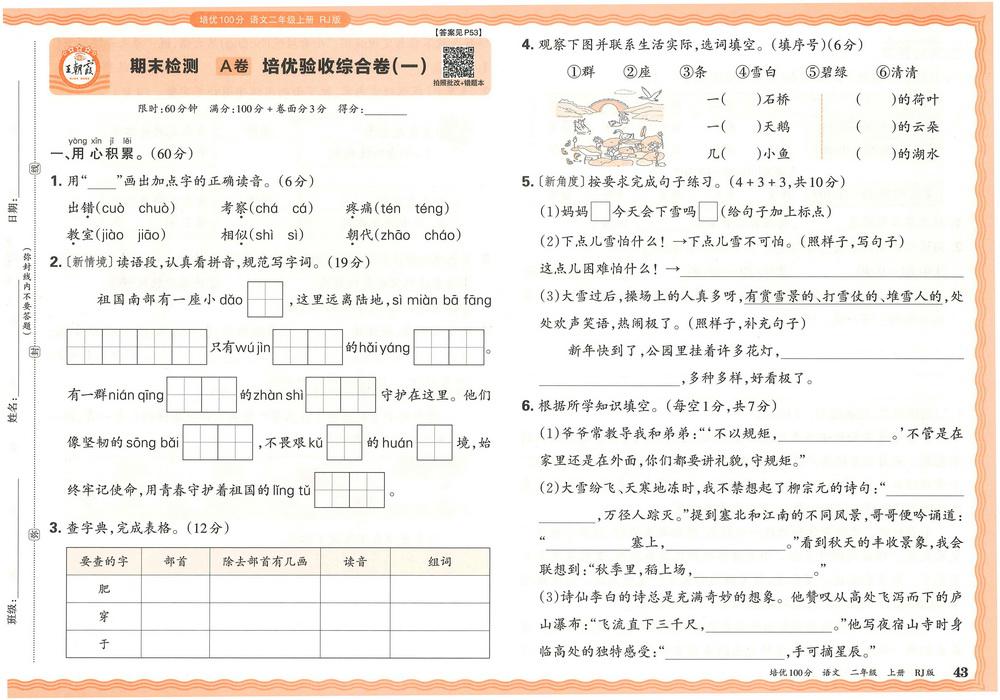 培优100分 语文二年级上册 RJ版
【答案见P53】
王朝霞
期末检测 A卷 培优验收综合卷(一)
拍照批改+错题本
限时:60分钟 满分:100分+卷面分3分 得分:________
yòng xīn jī lěi
一、用心积累。(60分)
1. 用“____”画出加点字的正确读音。(6分)
出错(cuò chuò) 考察(chá cá) 疼痛(tén téng)
教室(jiào jiāo) 相似(shì sì) 朝代(zhāo cháo)
2.〔新情境〕读语段,认真看拼音,规范写字词。(19分)
祖国南部有一座小dǎo ,这里远离陆地,sì miàn bā fāng
只有wú jìn 的hǎi yáng 。
有一群nián qīng 的zhàn shì 守护在这里。他们
像坚韧的sōng bǎi ,不畏艰kǔ 的huán 境,始
终牢记使命,用青春守护着祖国的lǐng tǔ 。
3. 查字典,完成表格。(12分)
要查的字 部首 除去部首有几画 读音 组词
肥
穿
于
日期:
(弥封线内不要答题)
姓名:
班级:
线
封
密
4. 观察下图并联系生活实际,选词填空。(填序号)(6分)
①群 ②座 ③条 ④雪白 ⑤碧绿 ⑥清清
一( )石桥 ( )的荷叶
一( )天鹅 ( )的云朵
几( )小鱼 ( )的湖水
5.〔新角度〕按要求完成句子练习。(4+3+3,共10分)
(1)妈妈□今天会下雪吗□(给句子加上标点)
(2)下点儿雪怕什么!→下点儿雪不可怕。(照样子,写句子)
这点儿困难怕什么!→________________
(3)大雪过后,操场上的人真多呀,有赏雪景的、打雪仗的、堆雪人的,处
处欢声笑语,热闹极了。(照样子,补充句子)
新年快到了,公园里挂着许多花灯,________________
________________,多种多样,好看极了。
6. 根据所学知识填空。(每空1分,共7分)
(1)爷爷常教导我和弟弟:“‘不以规矩,____________。’不管是在
家里还是在外面,你们都要讲礼貌,守规矩。”
(2)大雪纷飞、天寒地冻时,我不禁想起了柳宗元的诗句:“________
________,万径人踪灭。”提到塞北和江南的不同风景,哥哥便吟诵道:
“__________塞上,______________。”看到秋天的丰收景象,我会
联想到:“秋季里,稻上场,______________。”
(3)诗仙李白的诗总是充满奇妙的想象。他赞叹从高处飞泻而下的庐
山瀑布:“飞流直下三千尺,______________。”他写夜宿山寺时身
临高处的独特感受:“______________,手可摘星辰。”
培优100分 语文 二年级 上册 RJ版 43